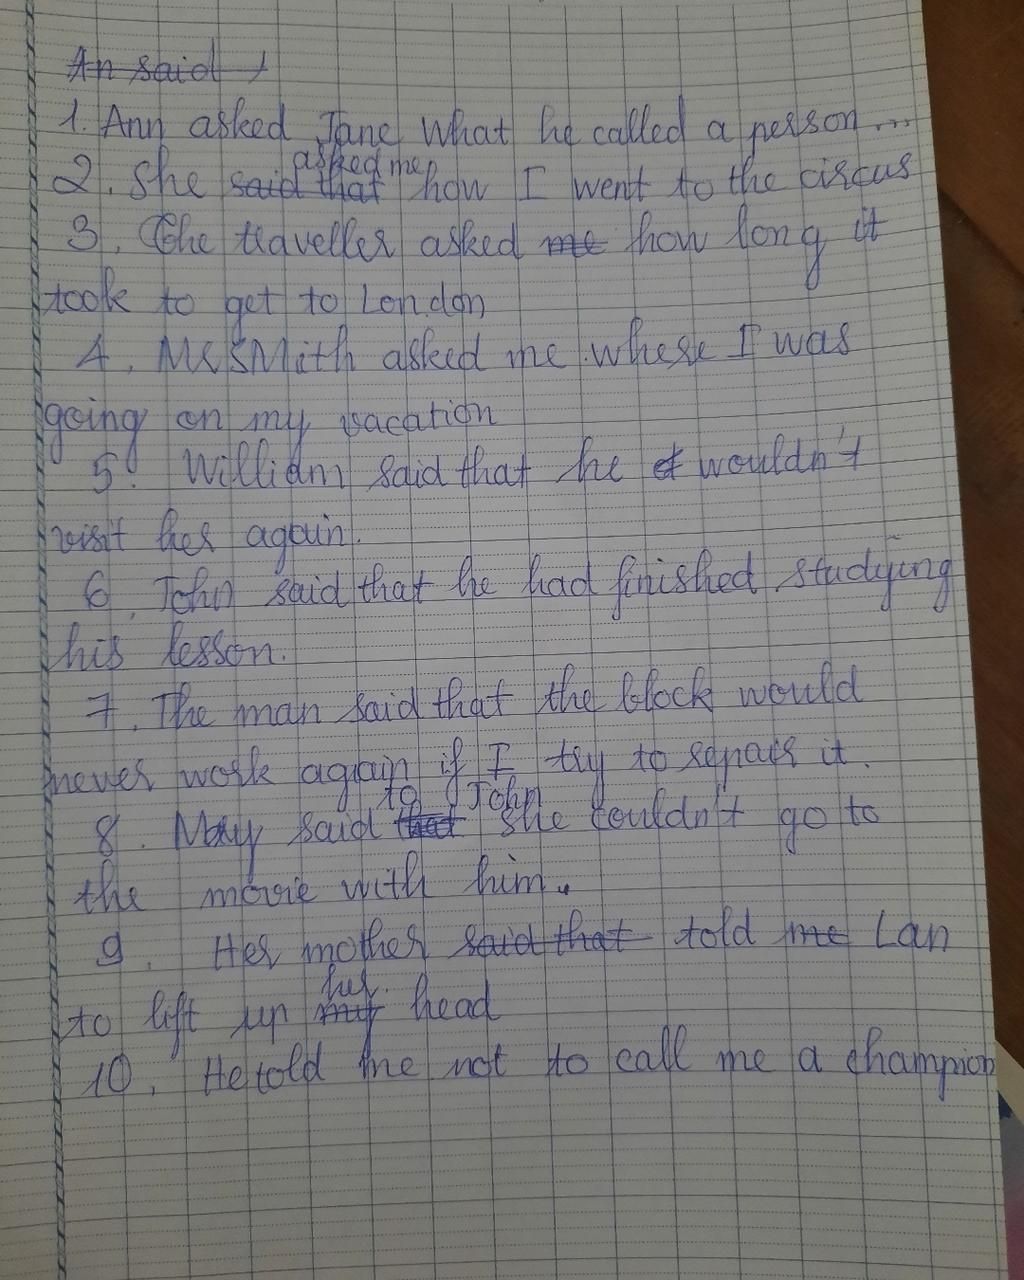 An said,
1. Ann asked Jane what he called a person...
asked me
2. She said that how I went to the circus
3. The traveller asked me how long it
took to get to London
4. Mr SMith asked me where I was
going on my vacation
5. William said that he wouldn't
visit her again.
6. John said that he had finished studying
his lesson.
7. The man said that the block would
never work again if I try to repair it.
to John
8. May said that she couldn't go to
the movie with him.
9. Her mother said that told me Lan
her
to lift up my head
10. He told me not to call me a champion